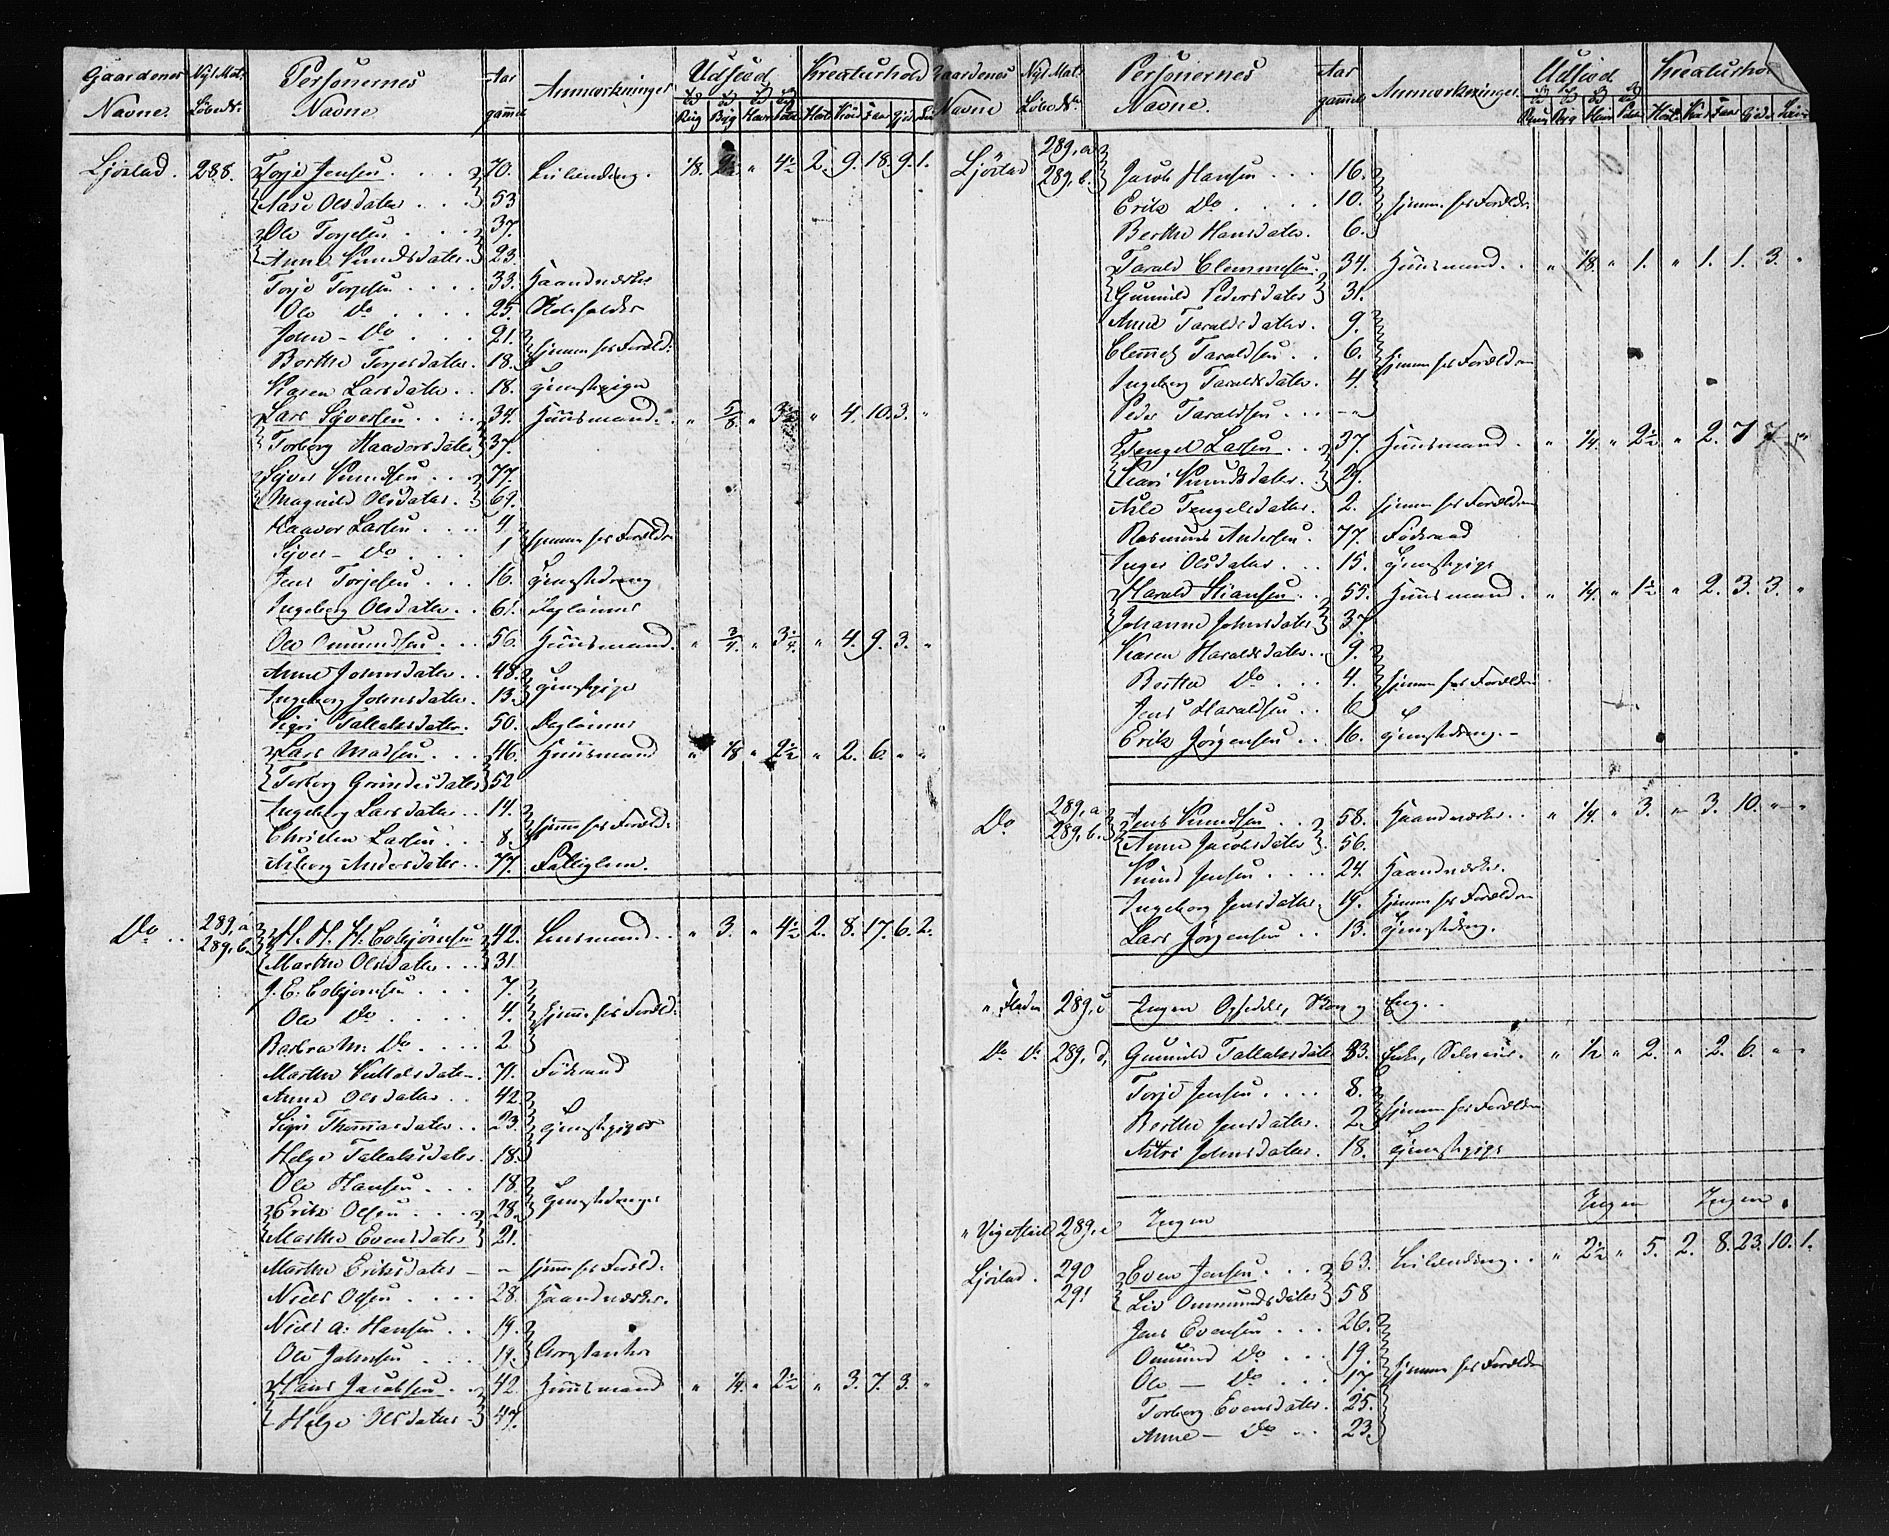 Gaardenes Navne. Nyt Mat: Løbe Nr. Personernes Navne Aar gammel Anmærkninger Udsæd Kreaturhold
Rug Byg Havre Potet Heste Kiør Faar Gjed. Sviin
Ljøstad. 288. Torje Jensen 70. Leilending. 1/8. 2 1/2 " 4 1/2 2. 9. 18. 9. 1.
Aase Olsdater 53
Ole Torjesen 37.
Anne Knudsdater 23.
Torje Torjesen 33. Haandværker
Ole Do 25.
John - Do 21.
Berthe Torjesdater. 18. hjemme hos Foræld:
Karen Larsdater 18. Tjenstepige
Lars Syversen 34. Huusmand. " 5/8. " 3 1/2 " 4. 10. 3. "
Torborg Haavorsdater 37.
Syver Knudsen 77.
Magnild Olsdater. 69.
Haavor Larsen 4
Syver - Do 1 hjemme hos Forældre
Jens Torjesen 16. Tjenstedreng
Ingeborg Olsdater 61. Daglønner
Ole Omundsen 56. Huusmand. " 3/4. " 3 1/4. " 4. 9. 3. "
Anne Johnsdater 48.
Ingeborg Johnsdater. 13. Tjenstepiger
Sigri Tallaksdater. 50. Daglønner
Lars Madsen 46. Huusmand " 1/8 " 2 1/2 " 2. 6. " "
Torborg Gundersdater 52
Ingeborg Larsdater 14.
Christen Larsen 8. hjemme hos Foræld:
Asborg Andersdater 77. Fattiglem.
Do 289, a 289, b. H. H. H. Colbjörnsen 42. Lensmand " 3. " 4 1/2 2. 8. 17. 6. 2.
Marthe Olsdater 31.
J. E. Colbjørnsen 7.
Ole Do 4. hjemme hos Foræld:
Barbra M. Do 2
Marthe 71. Föderaad
Anne Olsdater 42.
Sigri Thomasdater 23. Tjenstepiger
Helge Tallaksdater. 18.
Ole Hansen 18.
Erik Olsen 28. Tjenstedrenge
Marthe Evensdater 21.
Marthe Eriksdater - " hjemme hos Foræld.
Niels Olsen 28. Haandværker.
Niels A. Hansen 19.
Ole Johnsen 19.
Hans Jacobsen 42. Huusmand " 1/4. " 2 1/2 " 3. 7. 3. "
Helge Olsdater 47.
Gaardenes Navne Nyt Mat: Løbe Nr. Personernes Navne. Aar gammel Anmærkninger. Udsæd Kreaturhold
Rug Byg Havre Potet. Heste. Kiør Faar Gjed. Sviin
Ljöstad 289, a 289, b. Jacob Hansen 16.
Erik Do 10. hjemme hos Forældre
Berthe Hansdater. 6.
Tarald Clemmetsen 34. Huusmand. " 1/8. " 1. " 1. 1. 3. "
Gunnild Pedersdater 31.
Anne Taraldsdater. 9.
Clemmet Taraldsen 6. hjemme hos Forældrene
Ingeborg Taraldsdater. 4.
Peder Taraldsen - "
Tengel Larsen 37. Huusmand. " 1/4. " 2 1/2 " 2. 7 7. "
Kari Knudsdater. 29.
Asle Tengelsdater. 2. hjemme hos Forældrene
Rasmus Andersen. 77. Föderaad
Inger Olsdater 15. Tjenstepige
Harald Stiansen 55. Huusmand. " 1/4. " 1 1/2 " 2. 3. 3. "
Johanne Johnsdater 37
Karen Haraldsdater 9.
Berthe Do 4. hjemme hos Forældre
Jens Haraldsen 6
Erik Jørgensen 16. Tjenstedreng. -
Do 289, a 289, b. Jens Knudsen 58. Haandværker " 1/4. " 3. " 3. 10. " "
Anne Jacobsdater 56.
Knud Jensen 24. Haandværker.
Ingeborg Jensdater 19. hjemme hos Forældrene
Lars Jørgensen 13. Tjenstedreng.
" Fladen 289, c Ingen Opsidder, Skov og Eng.
Do Do 289, d. Gunnild Tallaksdater 33. Enke, Selveier. " 1/2 " 2. " 2. 6. " "
Torje Jensen 8.
Berthe Jensdater. 2 hjemme hos Forældre
Astri Johnsdater. 18. Tjenstepige
289, e Ingen Ingen Ingen.
Ljöstad. 290 291 Even Jensen 63. Leilending " 2 1/2 " 5. 2. 8. 23. 10. 1.
Liv Ommundsdater 58
Jens Evensen 26.
Omund Do 19
Ole - Do 17 hjemme hos Forældre
Torborg Evensdater. 25.
Anne - Do 23.